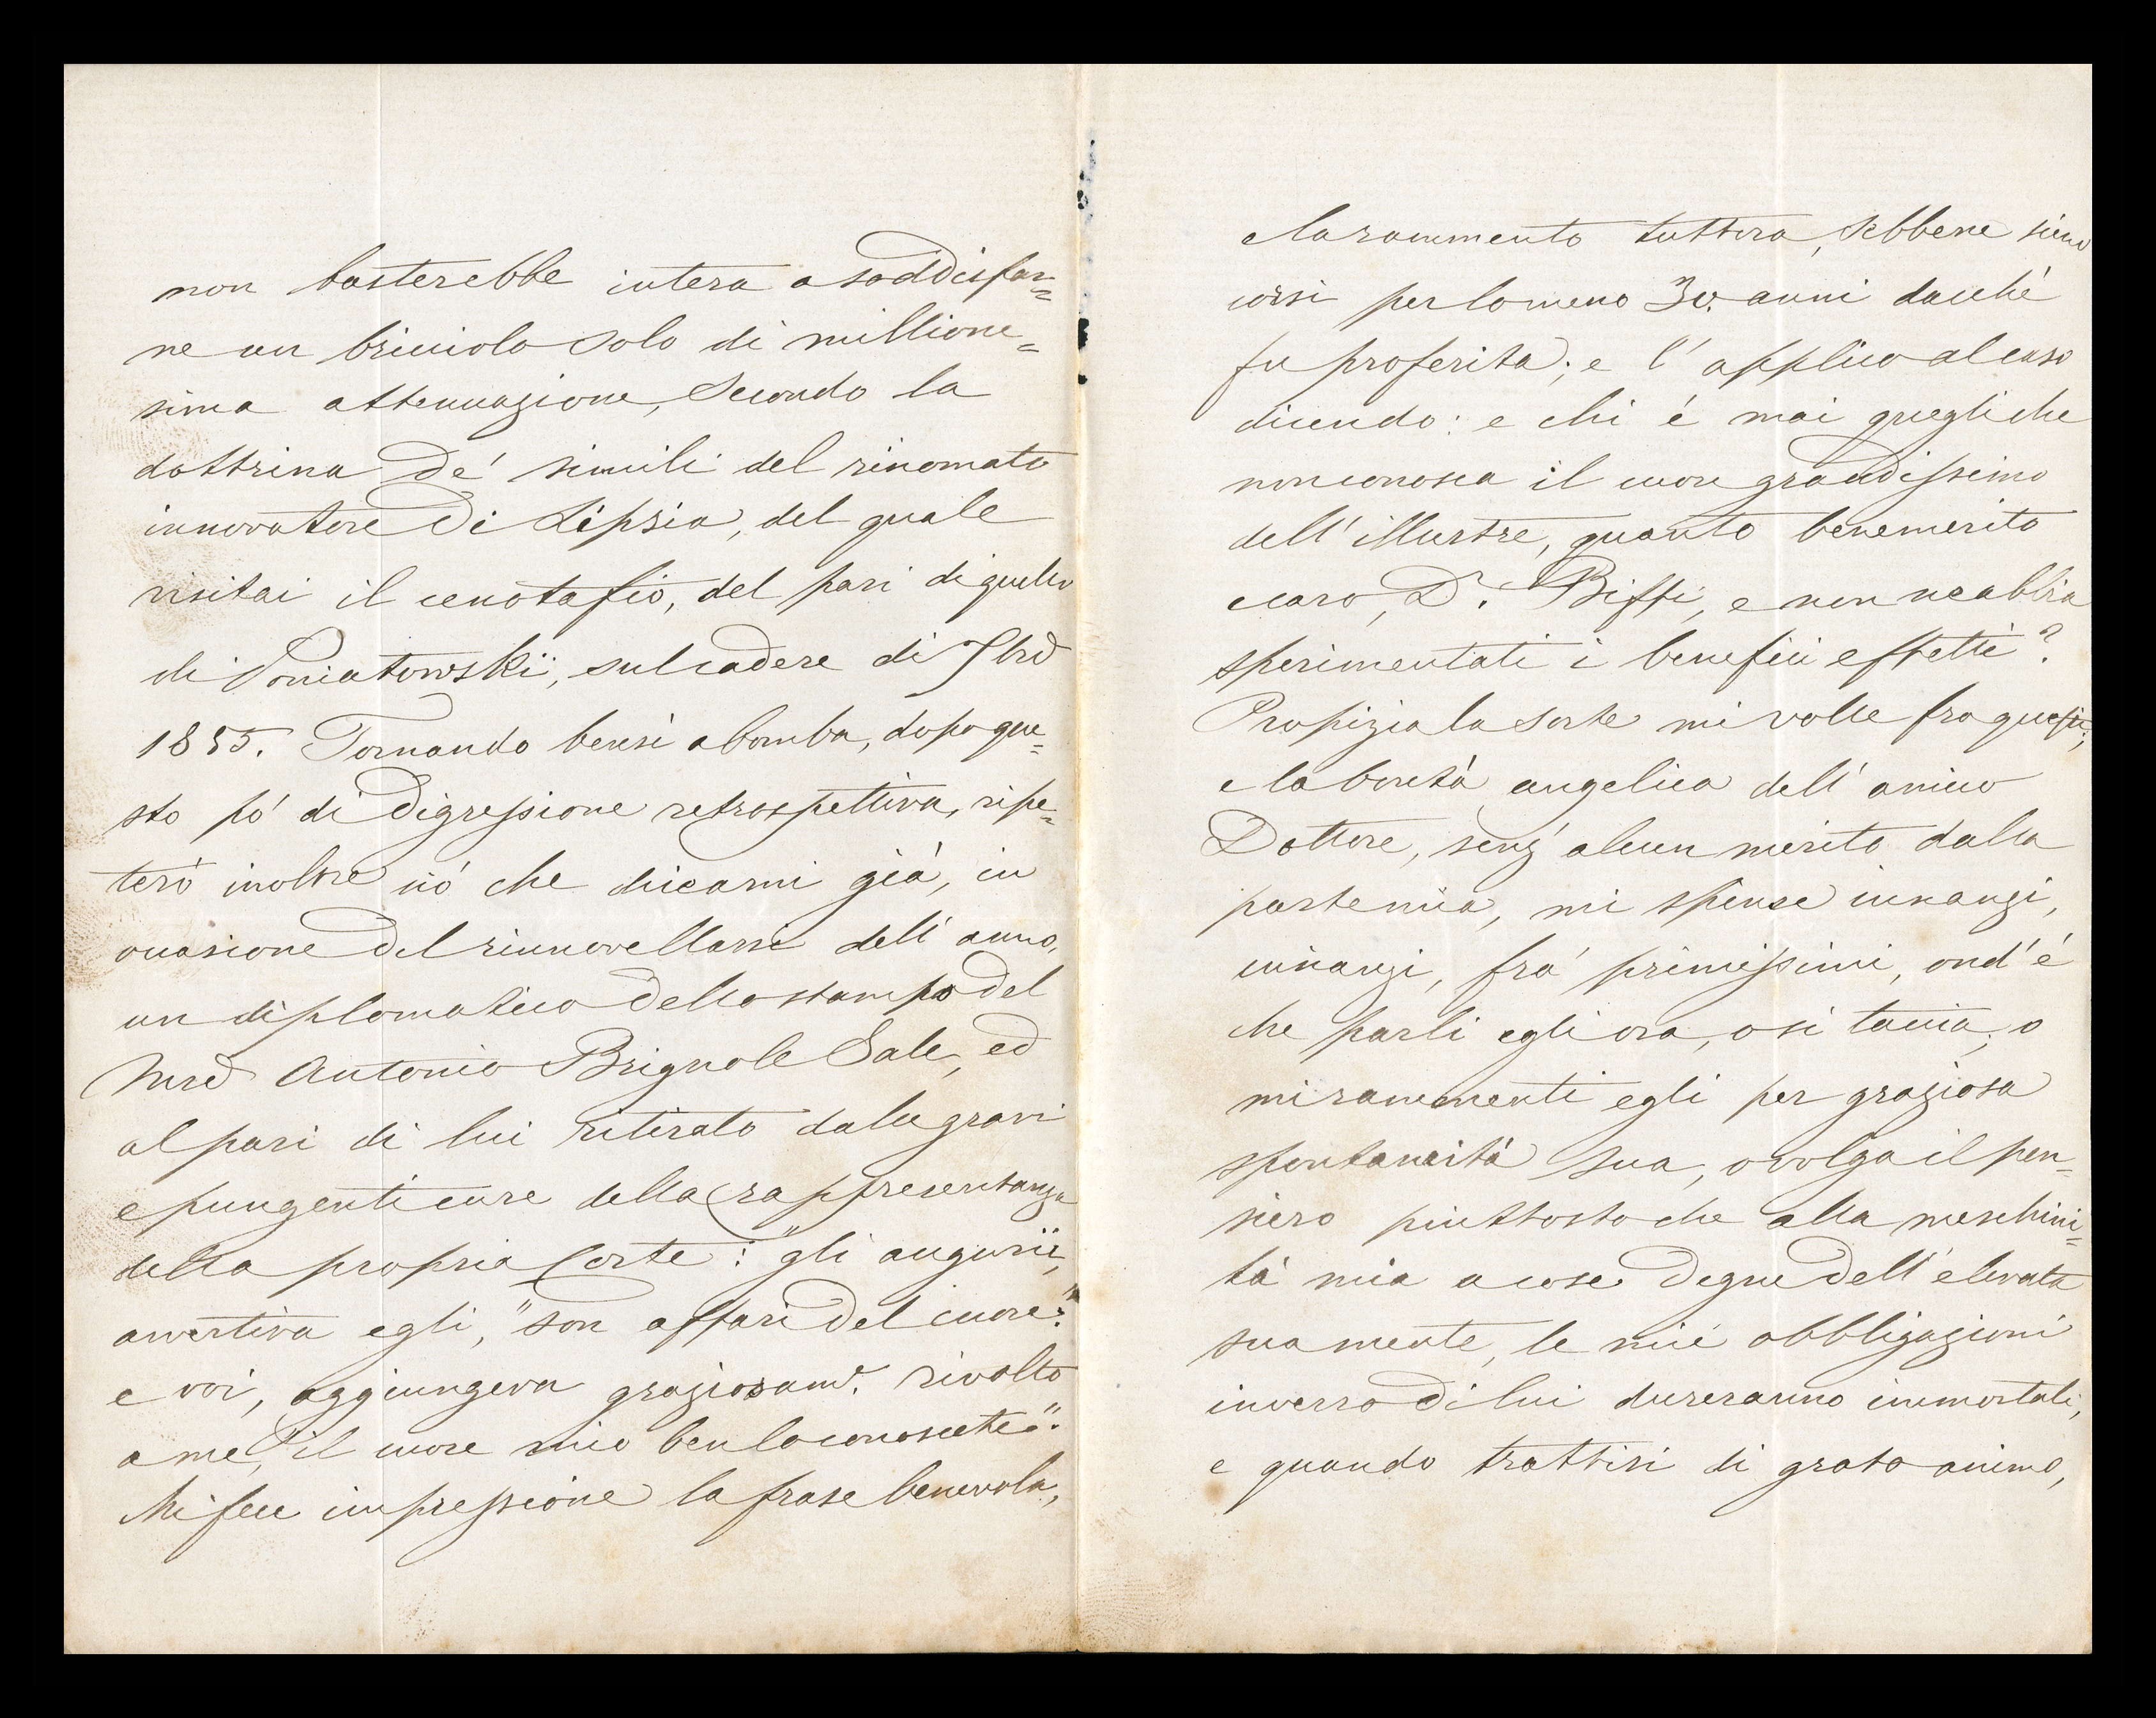 non basterebbe intera a soddisfar=
ne un briciolo solo di millione=
sima attenuazione, secondo la
dottrina de' simili del rinomato
innovatore di Lipsia, del quale
visitai il cenotafio, del pari di quello
di Poniatowskii, sul cadere di 7bre
1855. Tornando bensì a bomba, dopo que=
sto pó di digressione retrospettiva, ripe=
teró inoltre ció che dicami già, in
occasione del rinnovellarsi dell' anno,
un diplomatico dello stampo del
Antonio Brignole Sale, ed
al pari di lui ritirato dalle gravi
e pungenti cure della rappresentanza
della propria Corte: "gli augurii,
avvertiva egli, "son affari del cuore:"
e voi, aggiungeva graziosamte. rivolto
a me, "il cuore mio ben lo conoscete".
Mi fece impressione la frase benevola,
e la rammento tuttora, sebbene sieno
corsi per lo meno 30. anni dacché
fu proferita; e l' applico al caso
dicendo: e chi é mai quegli che
non conosca il cuore grandissimo
dell' illustre, quanto benemerito
e caro, Dr. Biffi, e non ne abbia
sperimentati i benefici effetti?
Propizia la sorte mi volle fra questi;
e la bontà angelica dell' amico
Dottore, senz' alcun merito dalla
parte mia, mi spinse innanzi,
innanzi, fra' primissimi, ond' é
che parli egli ora, o si taccia, o
mi rammenti egli per graziosa
spontaneità sua, o volga il pen=
siero piuttosto che alla meschini=
tà mia a cose degne dell' elevata
sua mente, le mie obbligazioni
inverso di lui dureranno immortali,
e quando trattisi di grato animo,